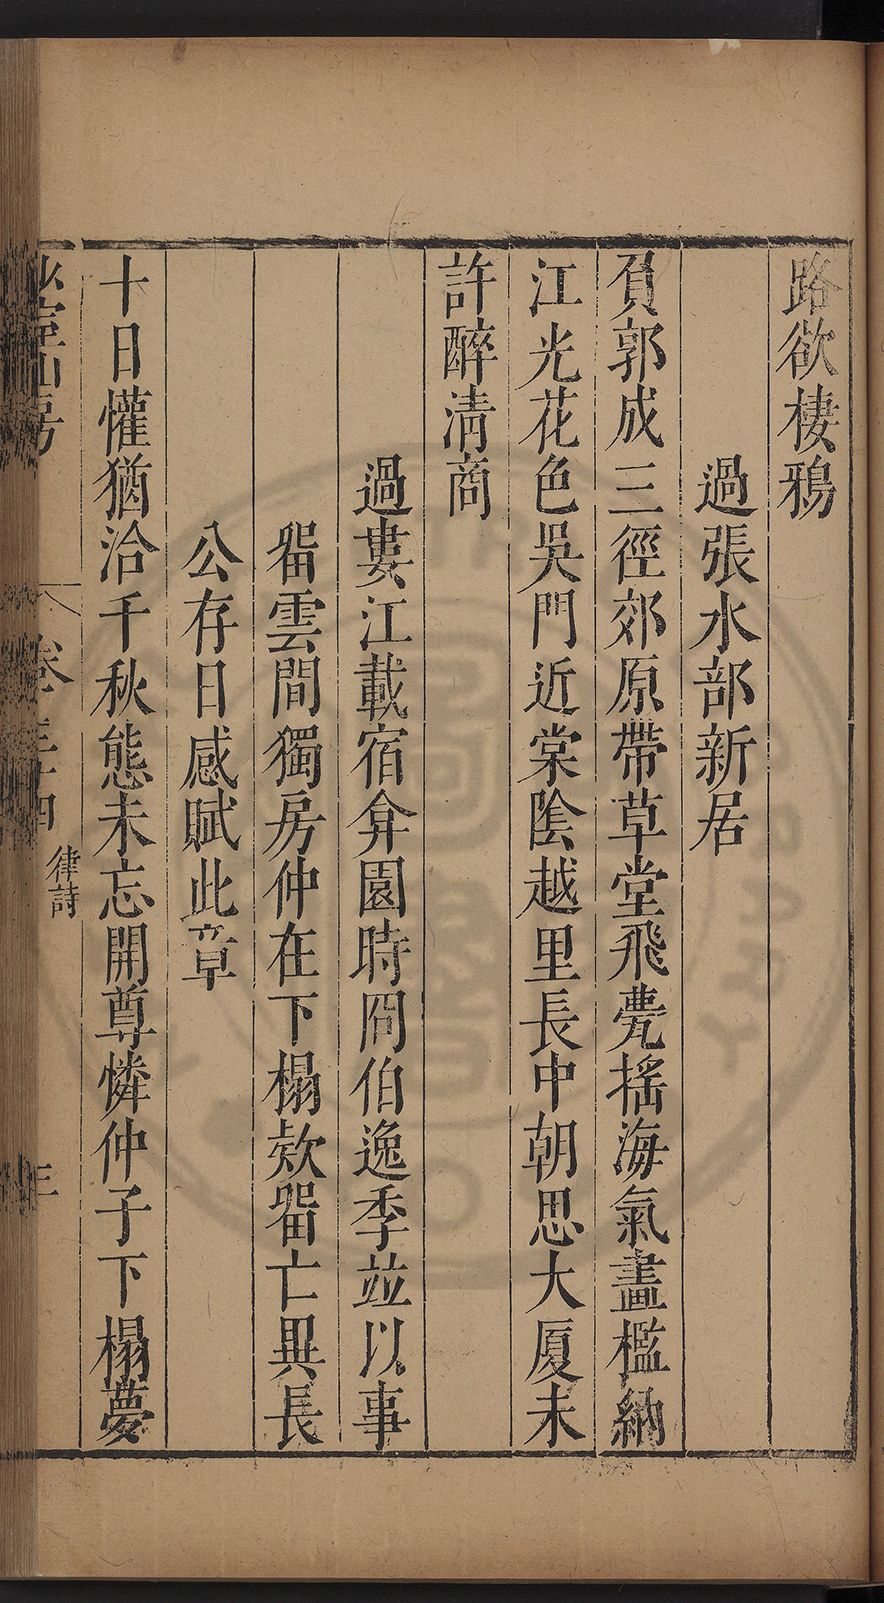 路欲棲鴉
過張水部新居
負郭成三徑郊原帶草堂飛甍搖海氣畫檻納
江光花色吳門近棠陰越里長中朝思大厦未
許醉清商
過婁江載宿弇園時冏伯逸季並以事
畱雲間獨房仲在下榻欵畱亡異長
公存日感賦此章
十日懽猶洽千秋態未忘開尊憐仲子下榻夢
山房
卷
律詩